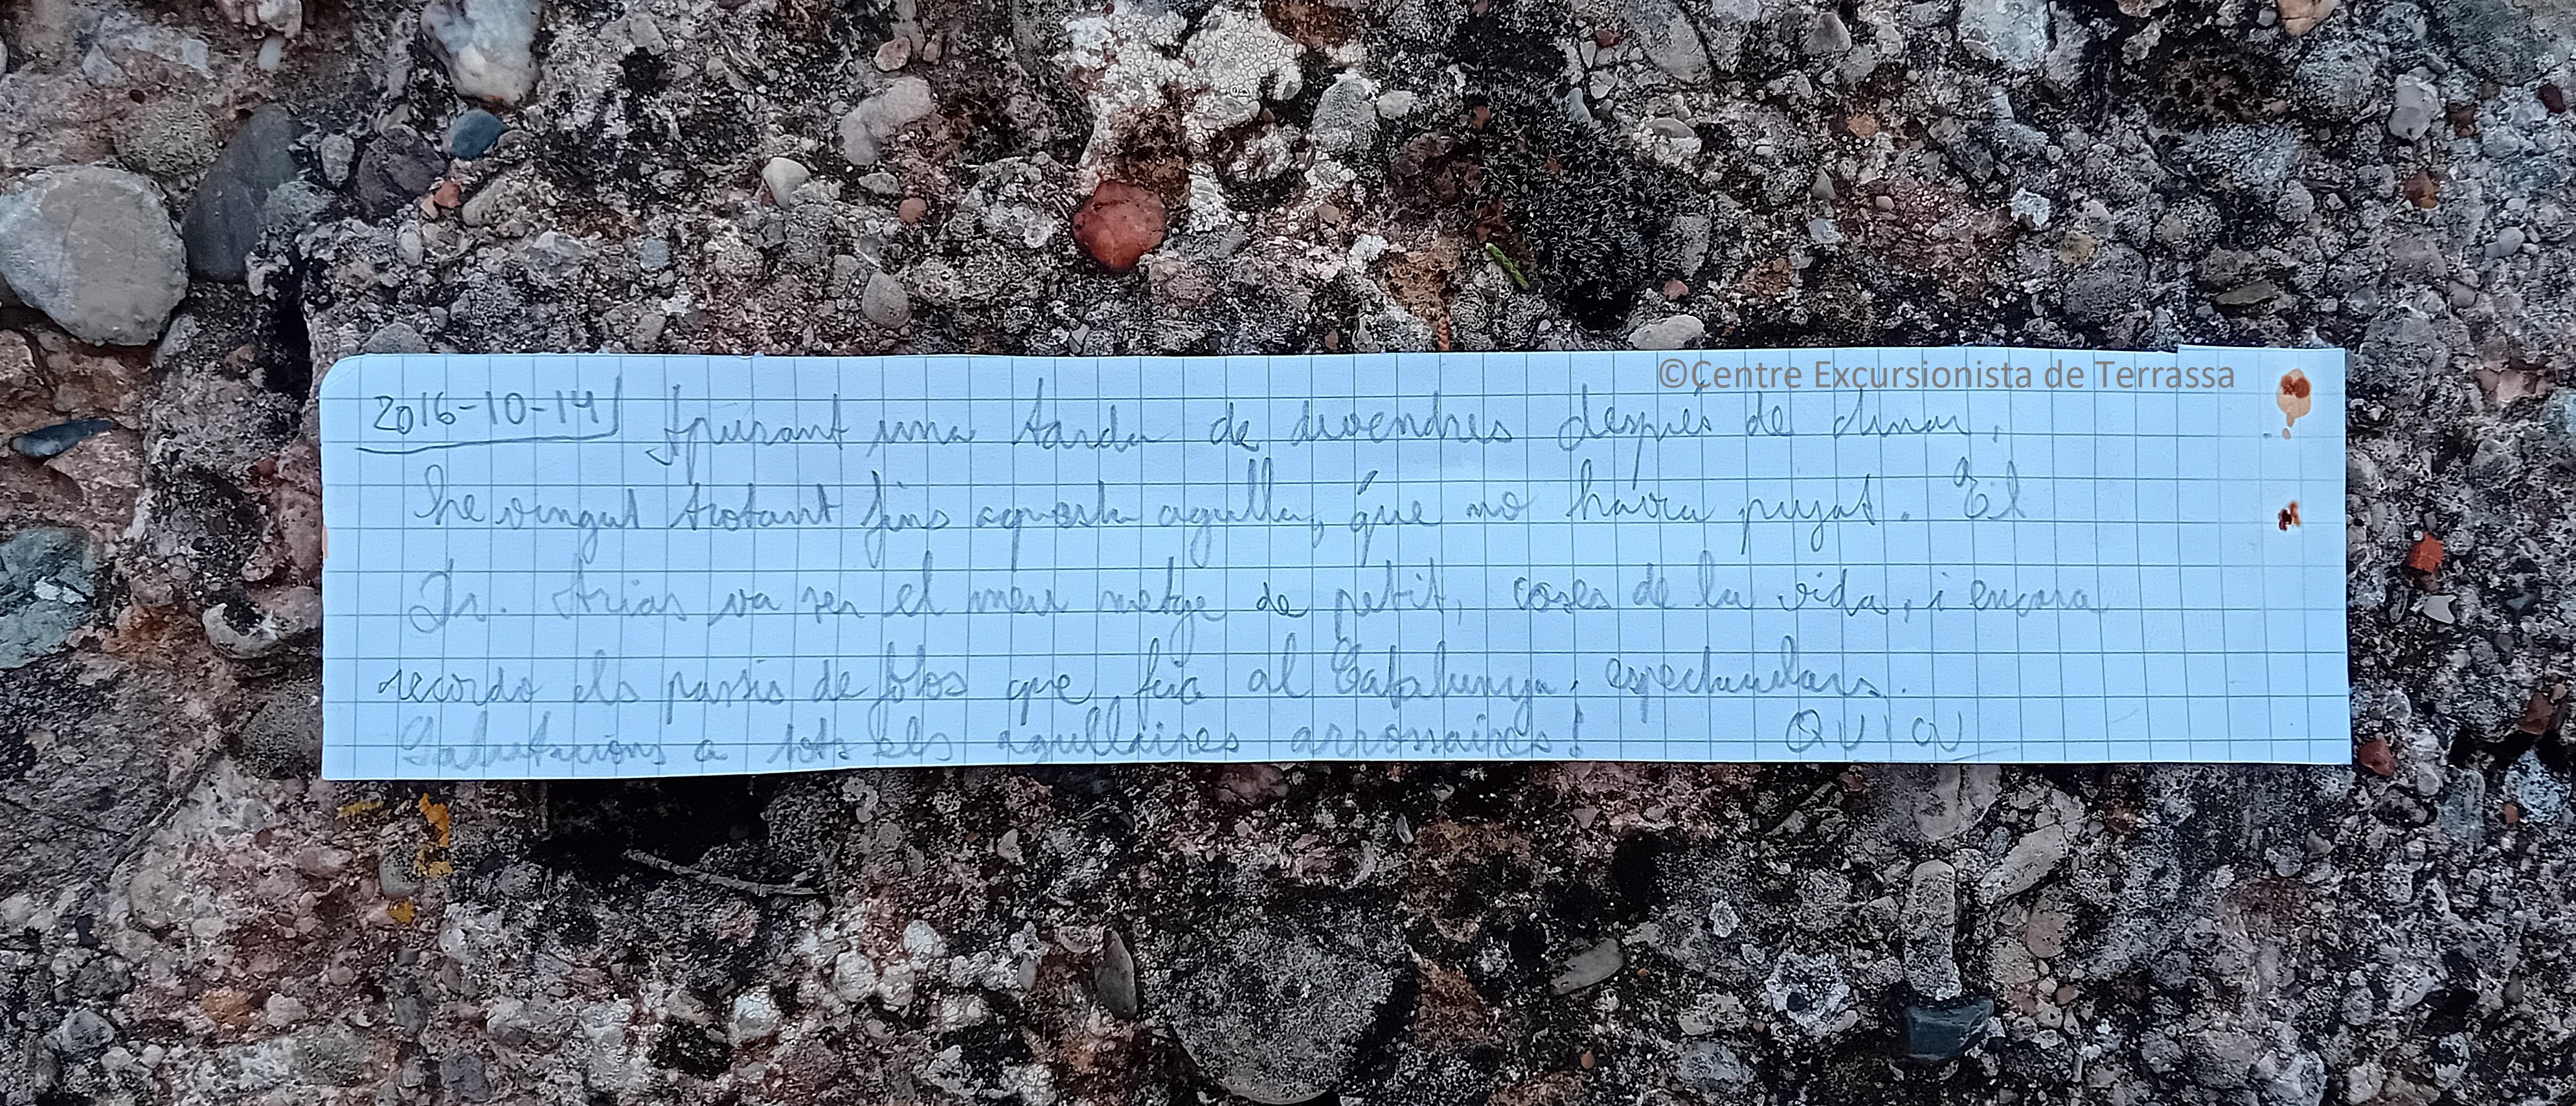 ©Centre Excursionista de Terrassa
2016-10-14 Apurant una tarda de divendres després de dinar,
he vingut trotant fins aquesta agulla, que no havia pujat. El
Dr. Arias va ser el meu metge de petit, coses de la vida, i encara
recordo els passis de fotos que feia al Catalunya, espectaculars.
Salutacions a tots els agullaires arrossaires!